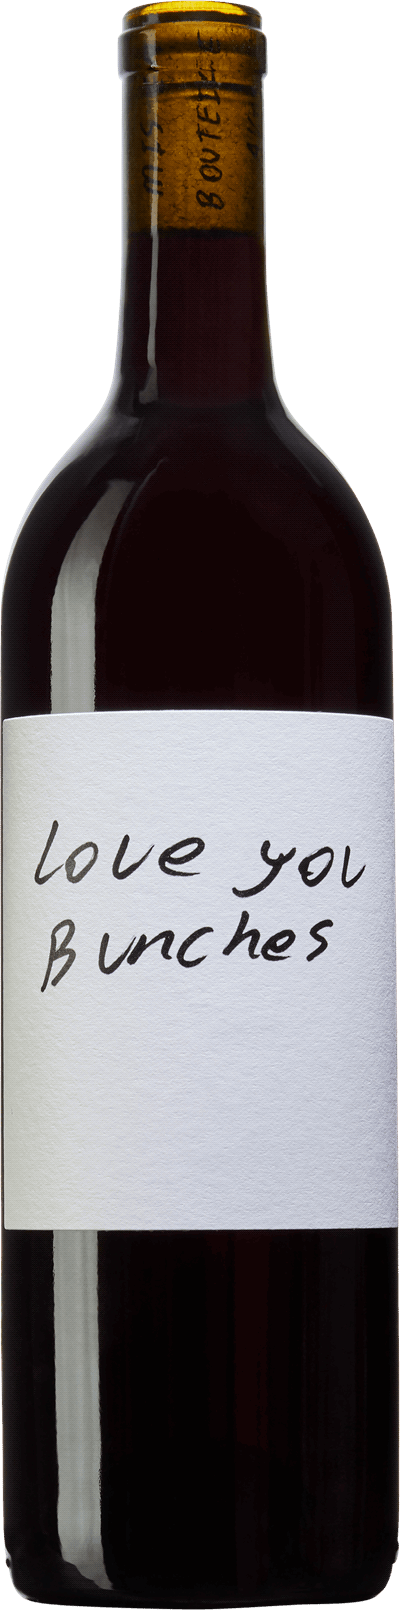 MIS
BOUTEILLE
love you
Bunches